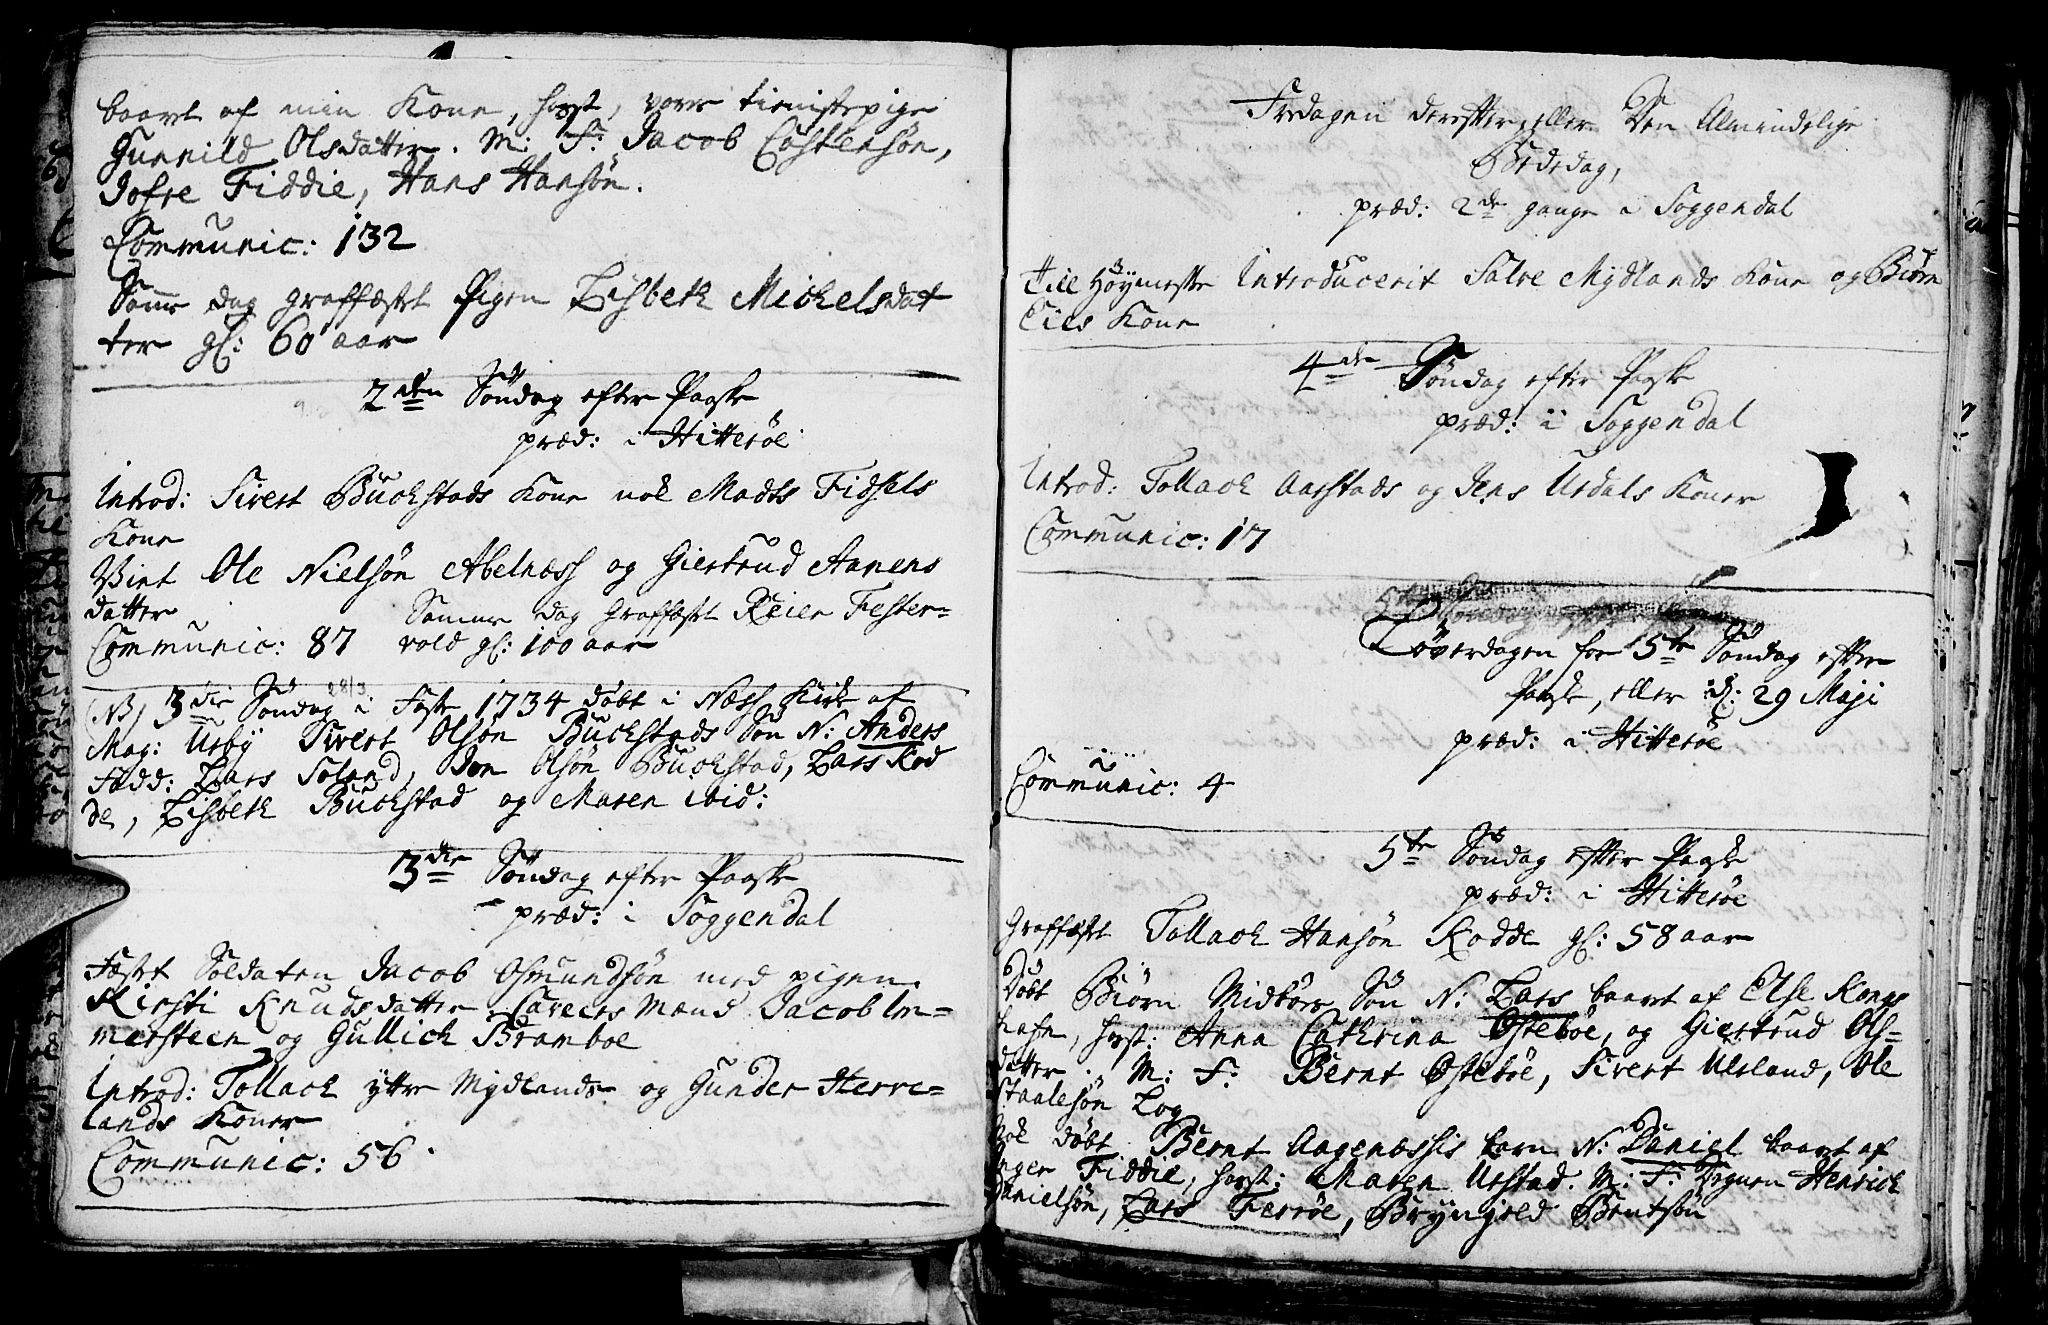 baaret af min Kone, hozst, vores tieniste pige
Gunnild Olsdatter. M: F: Jacob Castensøn,
Josse Fiddie, Hans Hansøn.
Communic: 132
Samme dag graffæstet Pigen Lisbeth Michelsdat
ter gl: 60 aar
2den Søndag efter Paaske
præd: i Hitterøe
Introd: Sivert Buchstads Kone nok Madts Fidsels
Kone
Viet Ole Nielsøn Abelnæss og Giertrud Aanens
datter
Samme dag Graffæst Reier Fester=
Communic: 87 vold gl: 100 aar
NB) 3die Søndag i Faste 1734 døbt i Næss Kirke af
28/3
Mag: Usby Sivert Olsøn Buckstads Søn N: Anders
Fadd: Lars Soland, Jon Olsøn Buckstad, Lars Rod
de, Lisbeth Buchstad og Maren ibid:
3die Søndag efter Paaske
præd: i Soggendal
Fæst Soldaten Jacob Osmundsøn med pigen
Kirsti Knudsdatter Caveurs Mænd Jacob Im=
mersteen og Gullich Bramboe
Introd: Tollach ytre Mydlands og Gunder Herre=
lands Koner
Communic: 56
Fredagen derefter, eller Den Almindelige
Bededag,
præd: 2de gange i Soggendal
Till Høymesse Introducerit Salve Mydlands Kone og Biørn
Eies Kone
4de Søndag efter Paaske
præd: i Soggendal
Introd: Tollach Aarstads og Jens Urdals Koner
Communic: 17
Løverdagen for 5te Søndag efter
Paaske, eller d: 29 Maji
præd: i Hitterøe
Communic: 4
5te Søndag efter Paaske
præd: i Hitterøe
Graffæstet Tollach Hansøn Rodde gl: 58 aar
Døbt Biørn Midbøes Søn N: Lars baaret af Else Kongs
hafn, hozst: Anna Cathrina Østebøe, og Giertrud Ols=
datter. M: F: Bernt Østebøe, Sivert Ulsland, Ole
Staalesøn Log
Nok døbt Bernt Aagenæssis barn N: Daniel baaret af
Inger Fiddie, hozst: Maren Urstad. M: F: Degnen Henrich
Danielsøn, Lars Ferrøe, Bryngeld Bentsøn